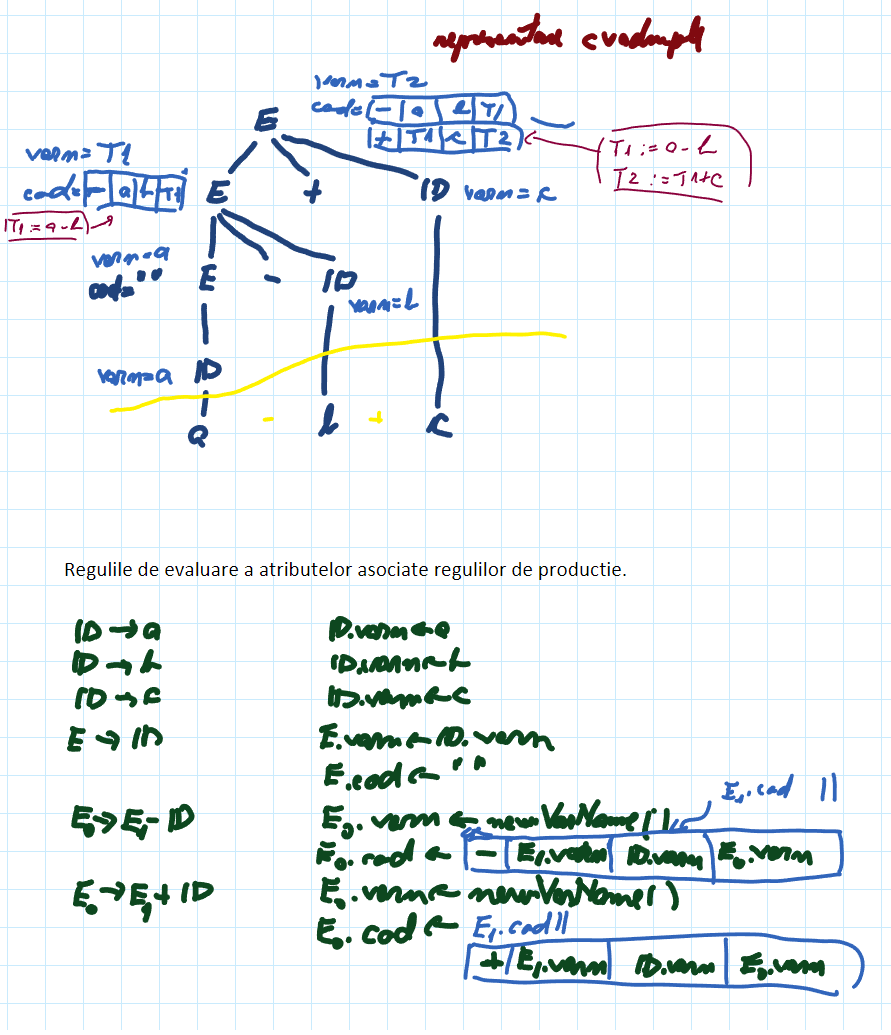 reprezentare cvadruple
varn=T2
cod= - a b T1
+ T1 c T2
T1 := a - b
T2 := T1+c
E
varn= T1
cod= - a b T1
T1 := a-b
E + ID varn = c
varn=a
cod=""
E - ID
varn=b
varn=a ID
a - b + c
Regulile de evaluare a atributelor asociate regulilor de productie.
ID → a ID.varn ← a
ID → b ID.varn ← b
ID → c ID.varn ← c
E → ID E.varn ← ID.varn
E.cod ← " "
E₁.cod ||
E₀ → E₁ - ID E₀.varn ← newVarName()
E₀.cod ← - E₁.varn ID.varn E₀.varn
E₀ → E₁ + ID E₀.varn ← newVarName()
E₀.cod ← E₁.cod ||
+ E₁.varn ID.varn E₀.varn